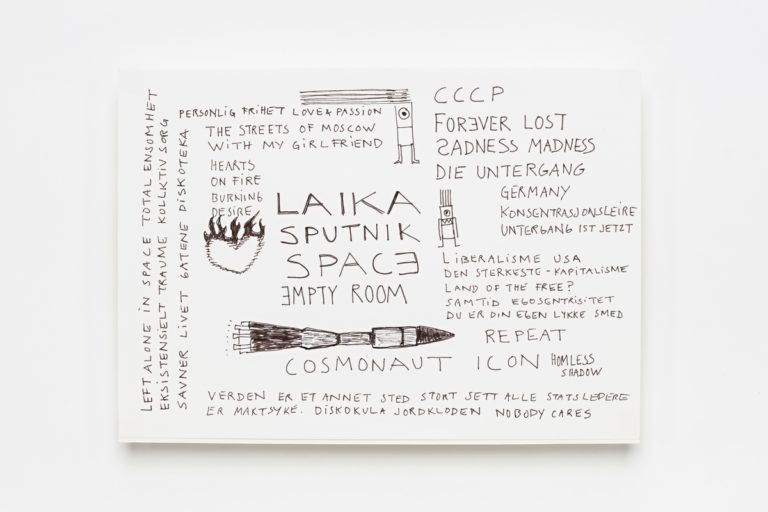 LEFT ALONE IN SPACE TOTAL ENSOMHET
EKSISTENSIELT TRAUME KOLLKTIV SORG
SAVNER LIVET GATENE DISKOTEKA
PERSONLIG FRIHET LOVE & PASSION
THE STREETS OF MOSCOW
WITH MY GIRLFRIEND
HEARTS
ON FIRE
BURNING
DESIRE
LAIKA
SPUTNIK
SPACE
EMPTY ROOM
COSMONAUT
CCCP
FOREVER LOST
SADNESS MADNESS
DIE UNTERGANG
GERMANY
KONSENTRASJONSLEIRE
UNTERGANG IST JETZT
LIBERALISME USA
DEN STERKESTE - KAPITALISME
LAND OF THE FREE?
SAMTID EGOSENTRISITET
DU ER DIN EGEN LYKKE SMED
REPEAT
ICON HOMLESS
SHADOW
VERDEN ER ET ANNET STED STORT SETT ALLE STATSLEDERE
ER MAKTSYKE. DISKOKULA JORDKLODEN NOBODY CARES